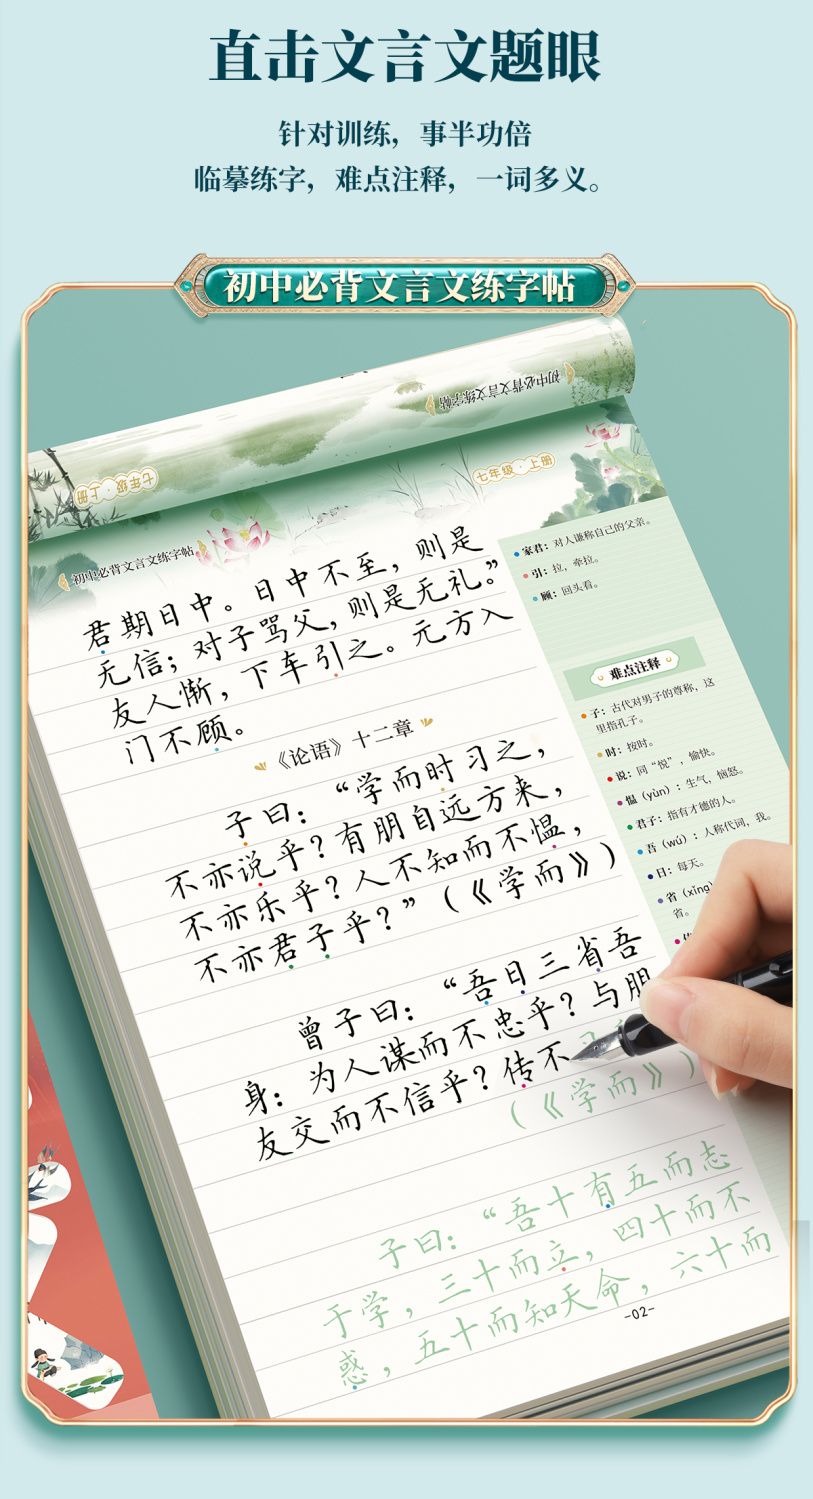 直击文言文题眼
针对训练，事半功倍
临摹练字，难点注释，一词多义。
初中必背文言文练字帖
初中必背文言文练字帖
七年级·上册
七年级·上册
初中必背文言文练字帖
君期日中。日中不至，则是
无信；对子骂父，则是无礼。”
友人惭，下车引之。元方入
门不顾。
家君：对人谦称自己的父亲。
引：拉，牵拉。
顾：回头看。
《论语》十二章
子曰：“学而时习之，
不亦说乎？有朋自远方来，
不亦乐乎？人不知而不愠，
不亦君子乎？”（《学而》）
曾子曰：“吾日三省吾
身：为人谋而不忠乎？与朋
友交而不信乎？传不
（《学而》）
子曰：“吾十有五而志
于学，三十而立，四十而不
惑，五十而知天命，六十而
难点注释
子：古代对男子的尊称，这
里指孔子。
时：按时。
说：同“悦”，愉快。
愠（yùn）：生气，恼怒。
君子：指有才德的人。
吾（wú）：人称代词，我。
日：每天。
省（xǐng）
省。
-02-